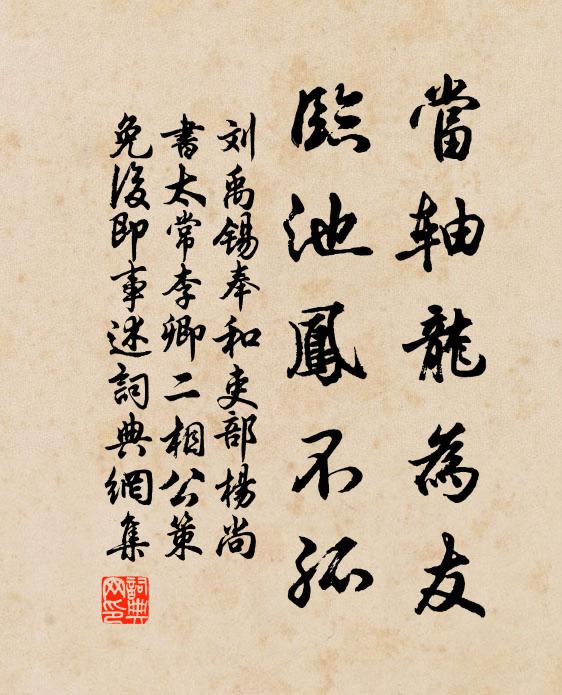 當軸龍為友
臨池鳳不孤
刘禹锡奉和吏部楊尚
書太常李卿二相公策
免後即事述詞典網集
詞典網印